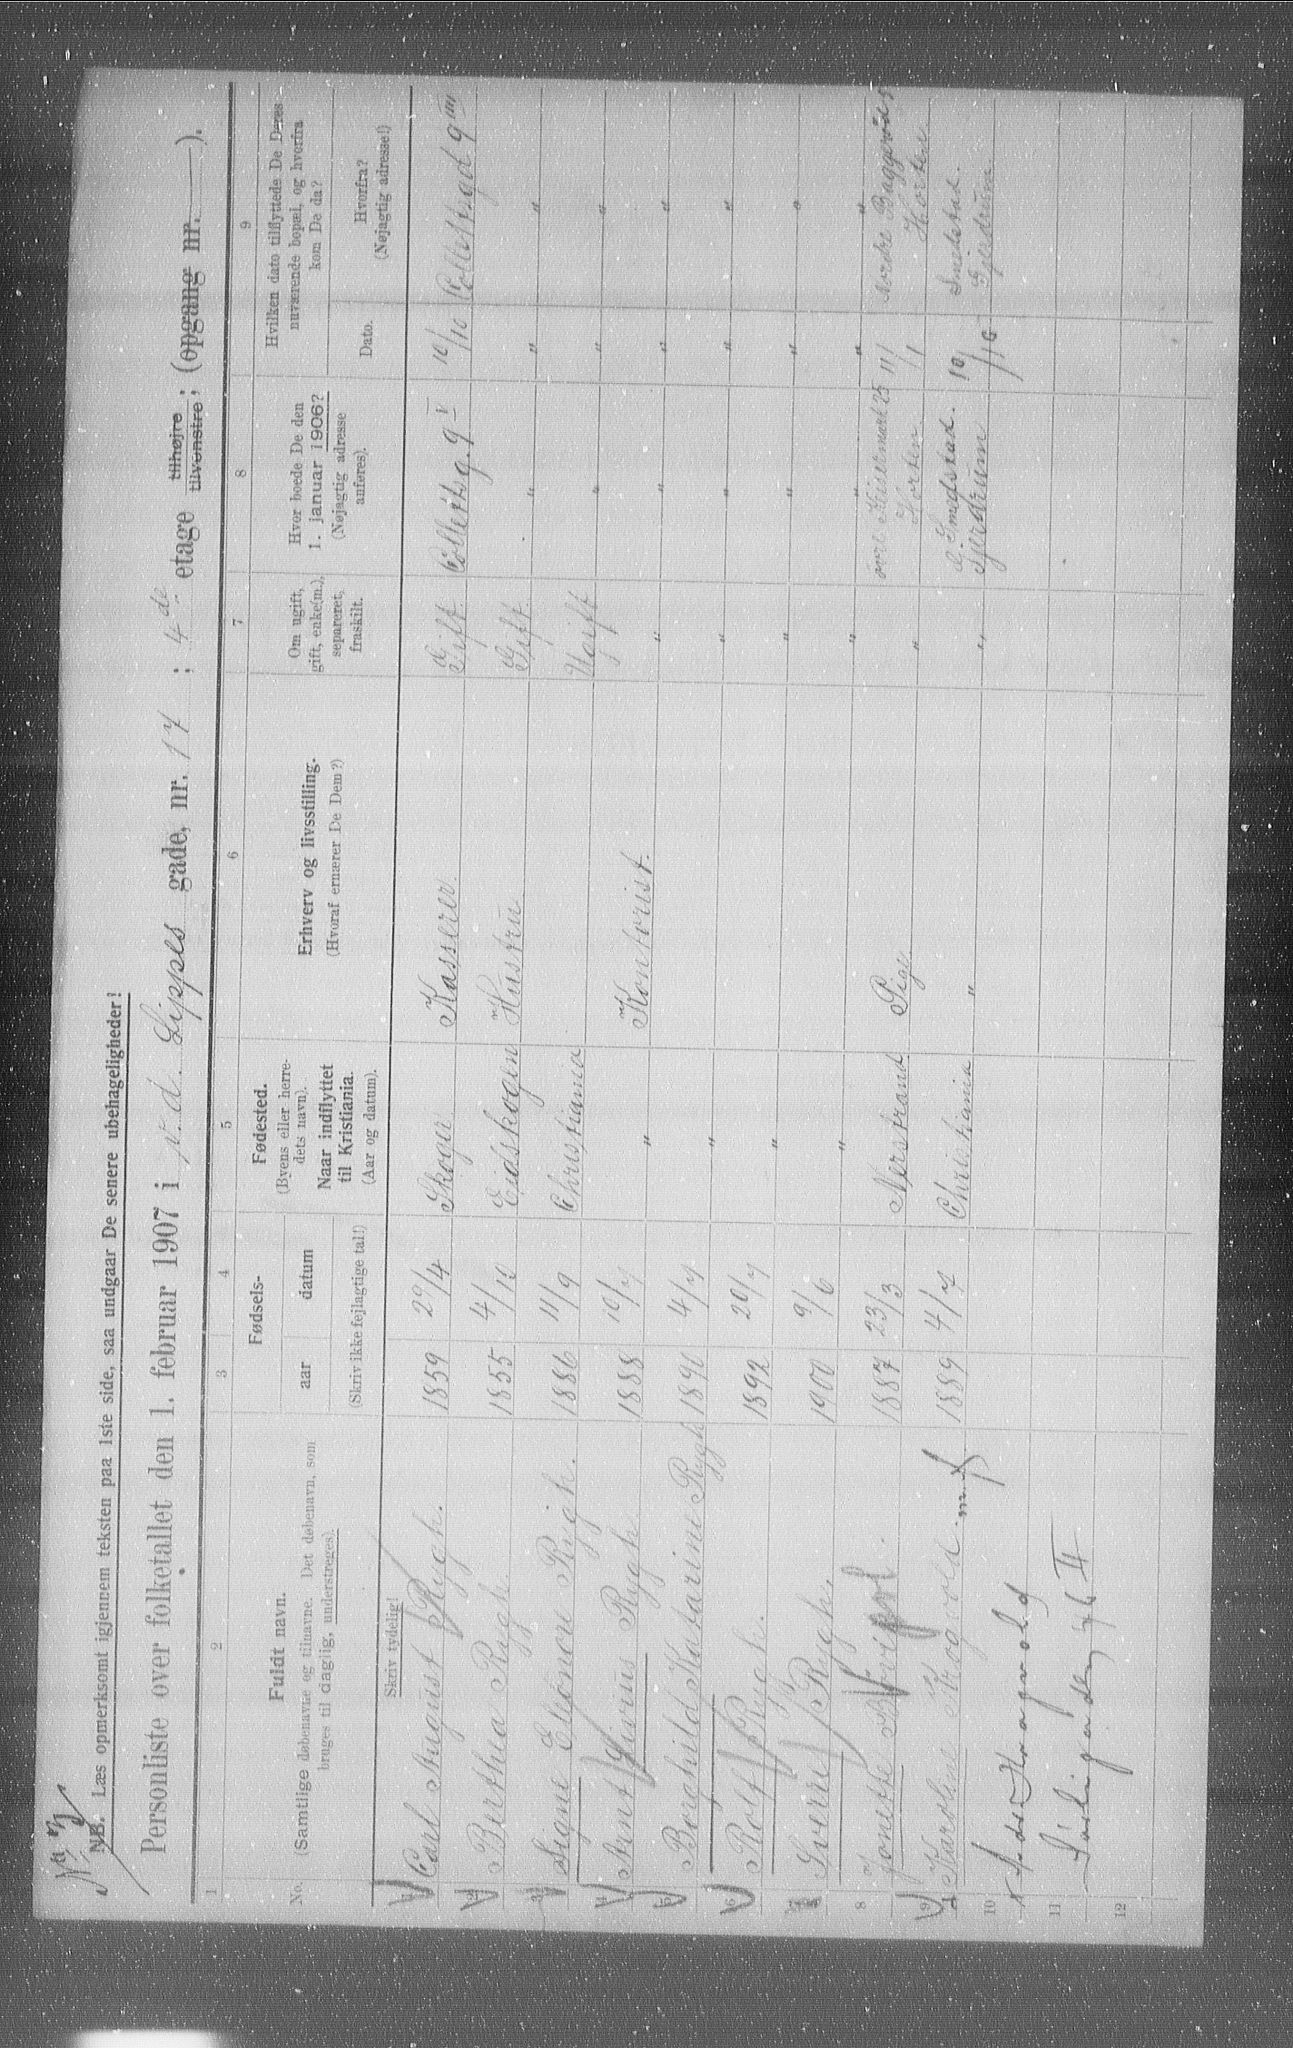 No 7
NB. Læs opmerksomt igjennem teksten paa 1ste side, saa undgaar De senere ubehageligheder!
Personliste over folketallet den 1. februar 1907 i v. d. Lippes gade, nr. 17 ; 4de etage tilhøjre tilvenstre ; (opgang nr. ).
1 2 3 4 5 6 7 8 9
No. Fuldt navn. (Samtlige døbenavne og tilnavne. Det døbenavn, som bruges til daglig, understreges). Skriv tydelig!
Fødsels- aar datum (Skriv ikke fejlagtige tal!)
Fødested. (Byens eller herredets navn). Naar indflyttet til Kristiania. (Aar og datum).
Erhverv og livsstilling. (Hvoraf ernærer De Dem?)
Om ugift, gift, enke(m.), separeret, fraskilt.
Hvor boede De den 1. januar 1906? (Nøjagtig adresse anføres).
Hvilken dato tilflyttede De Deres nuværende bopæl, og hvorfra kom De da? Dato. Hvorfra? (Nøjagtig adresse!)
1 Carl August Rygh. 1859 29/4 Skoger Kasserer. Gift Collettsg. 9 V 10/10 Collettsgd 9
2 Berthea Rygh. 1855 4/10 Eidskogen Hustru Gift " " "
3 Signe Eleonore Rygh. 1886 11/9 Christiania Ugift " " "
4 Arnt Sivius Rygh. 1888 10/7 " Kontorist. " " " "
5 Borghild Katarine Rygh 1890 4/7 " " " " "
6 Rolf Rygh. 1892 20/7 " " " " "
7 Sverre Rygh. 1900 9/6 " " " " "
8 Jonette 1887 23/3 Nerstrand Pige " øvre 25 Horten 11/1 nordre Baggerød 5 Horten
9 Karoline Krogvold 1889 4/7 Christiania " " G. Smedstad. Gjerdrum 10/10 Smedstad. Gjerdrum
10
11
12